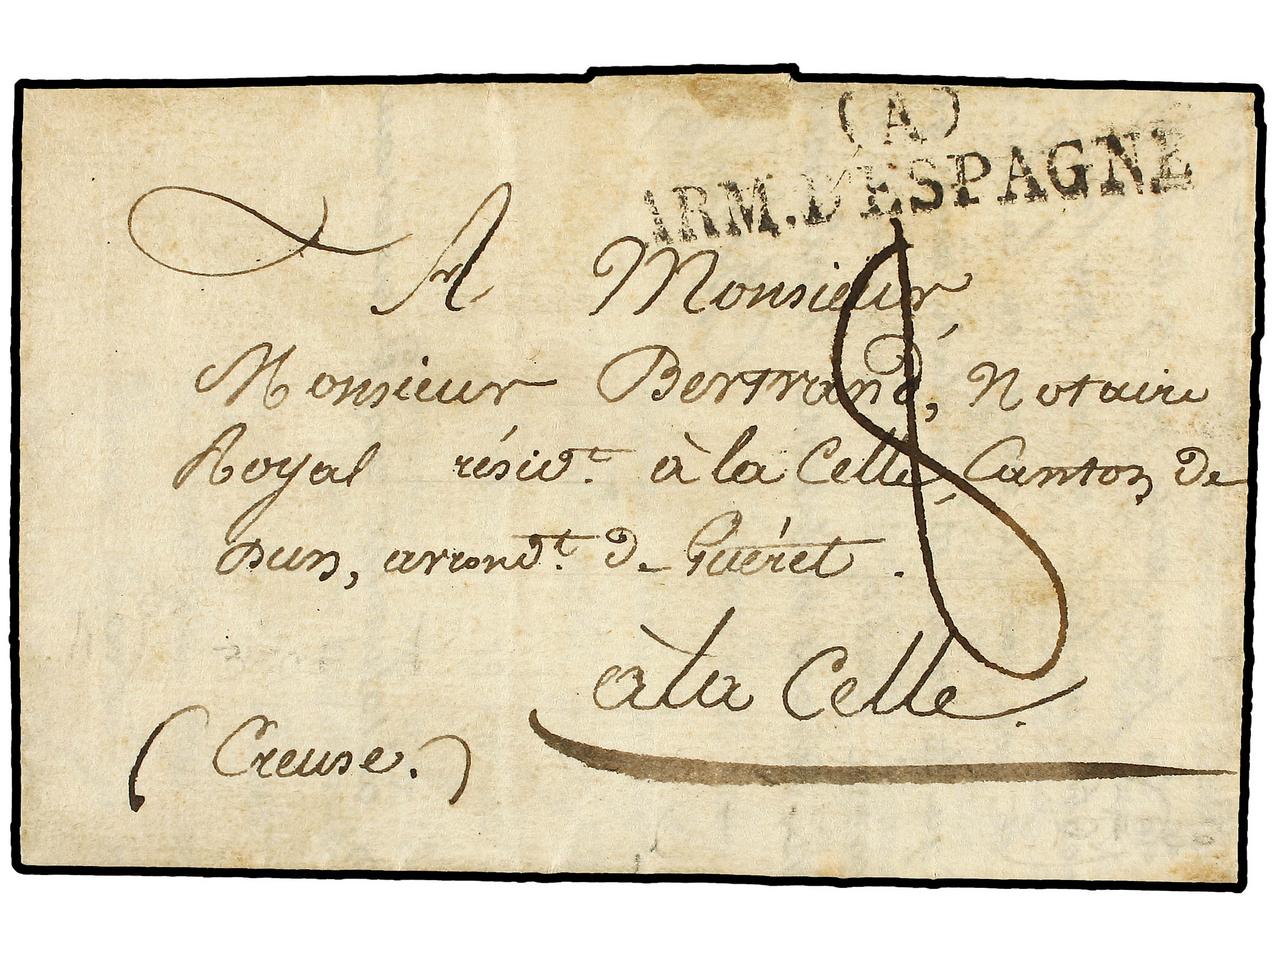 (A)
ARM. D'ESPAGNE
A Monsieur,
Monsieur Bertrand, Notaire
Royal résidt. à la Celle, Canton de
Dun, arrondt. de Guéret.
à la Celle.
(Creuse.)
8